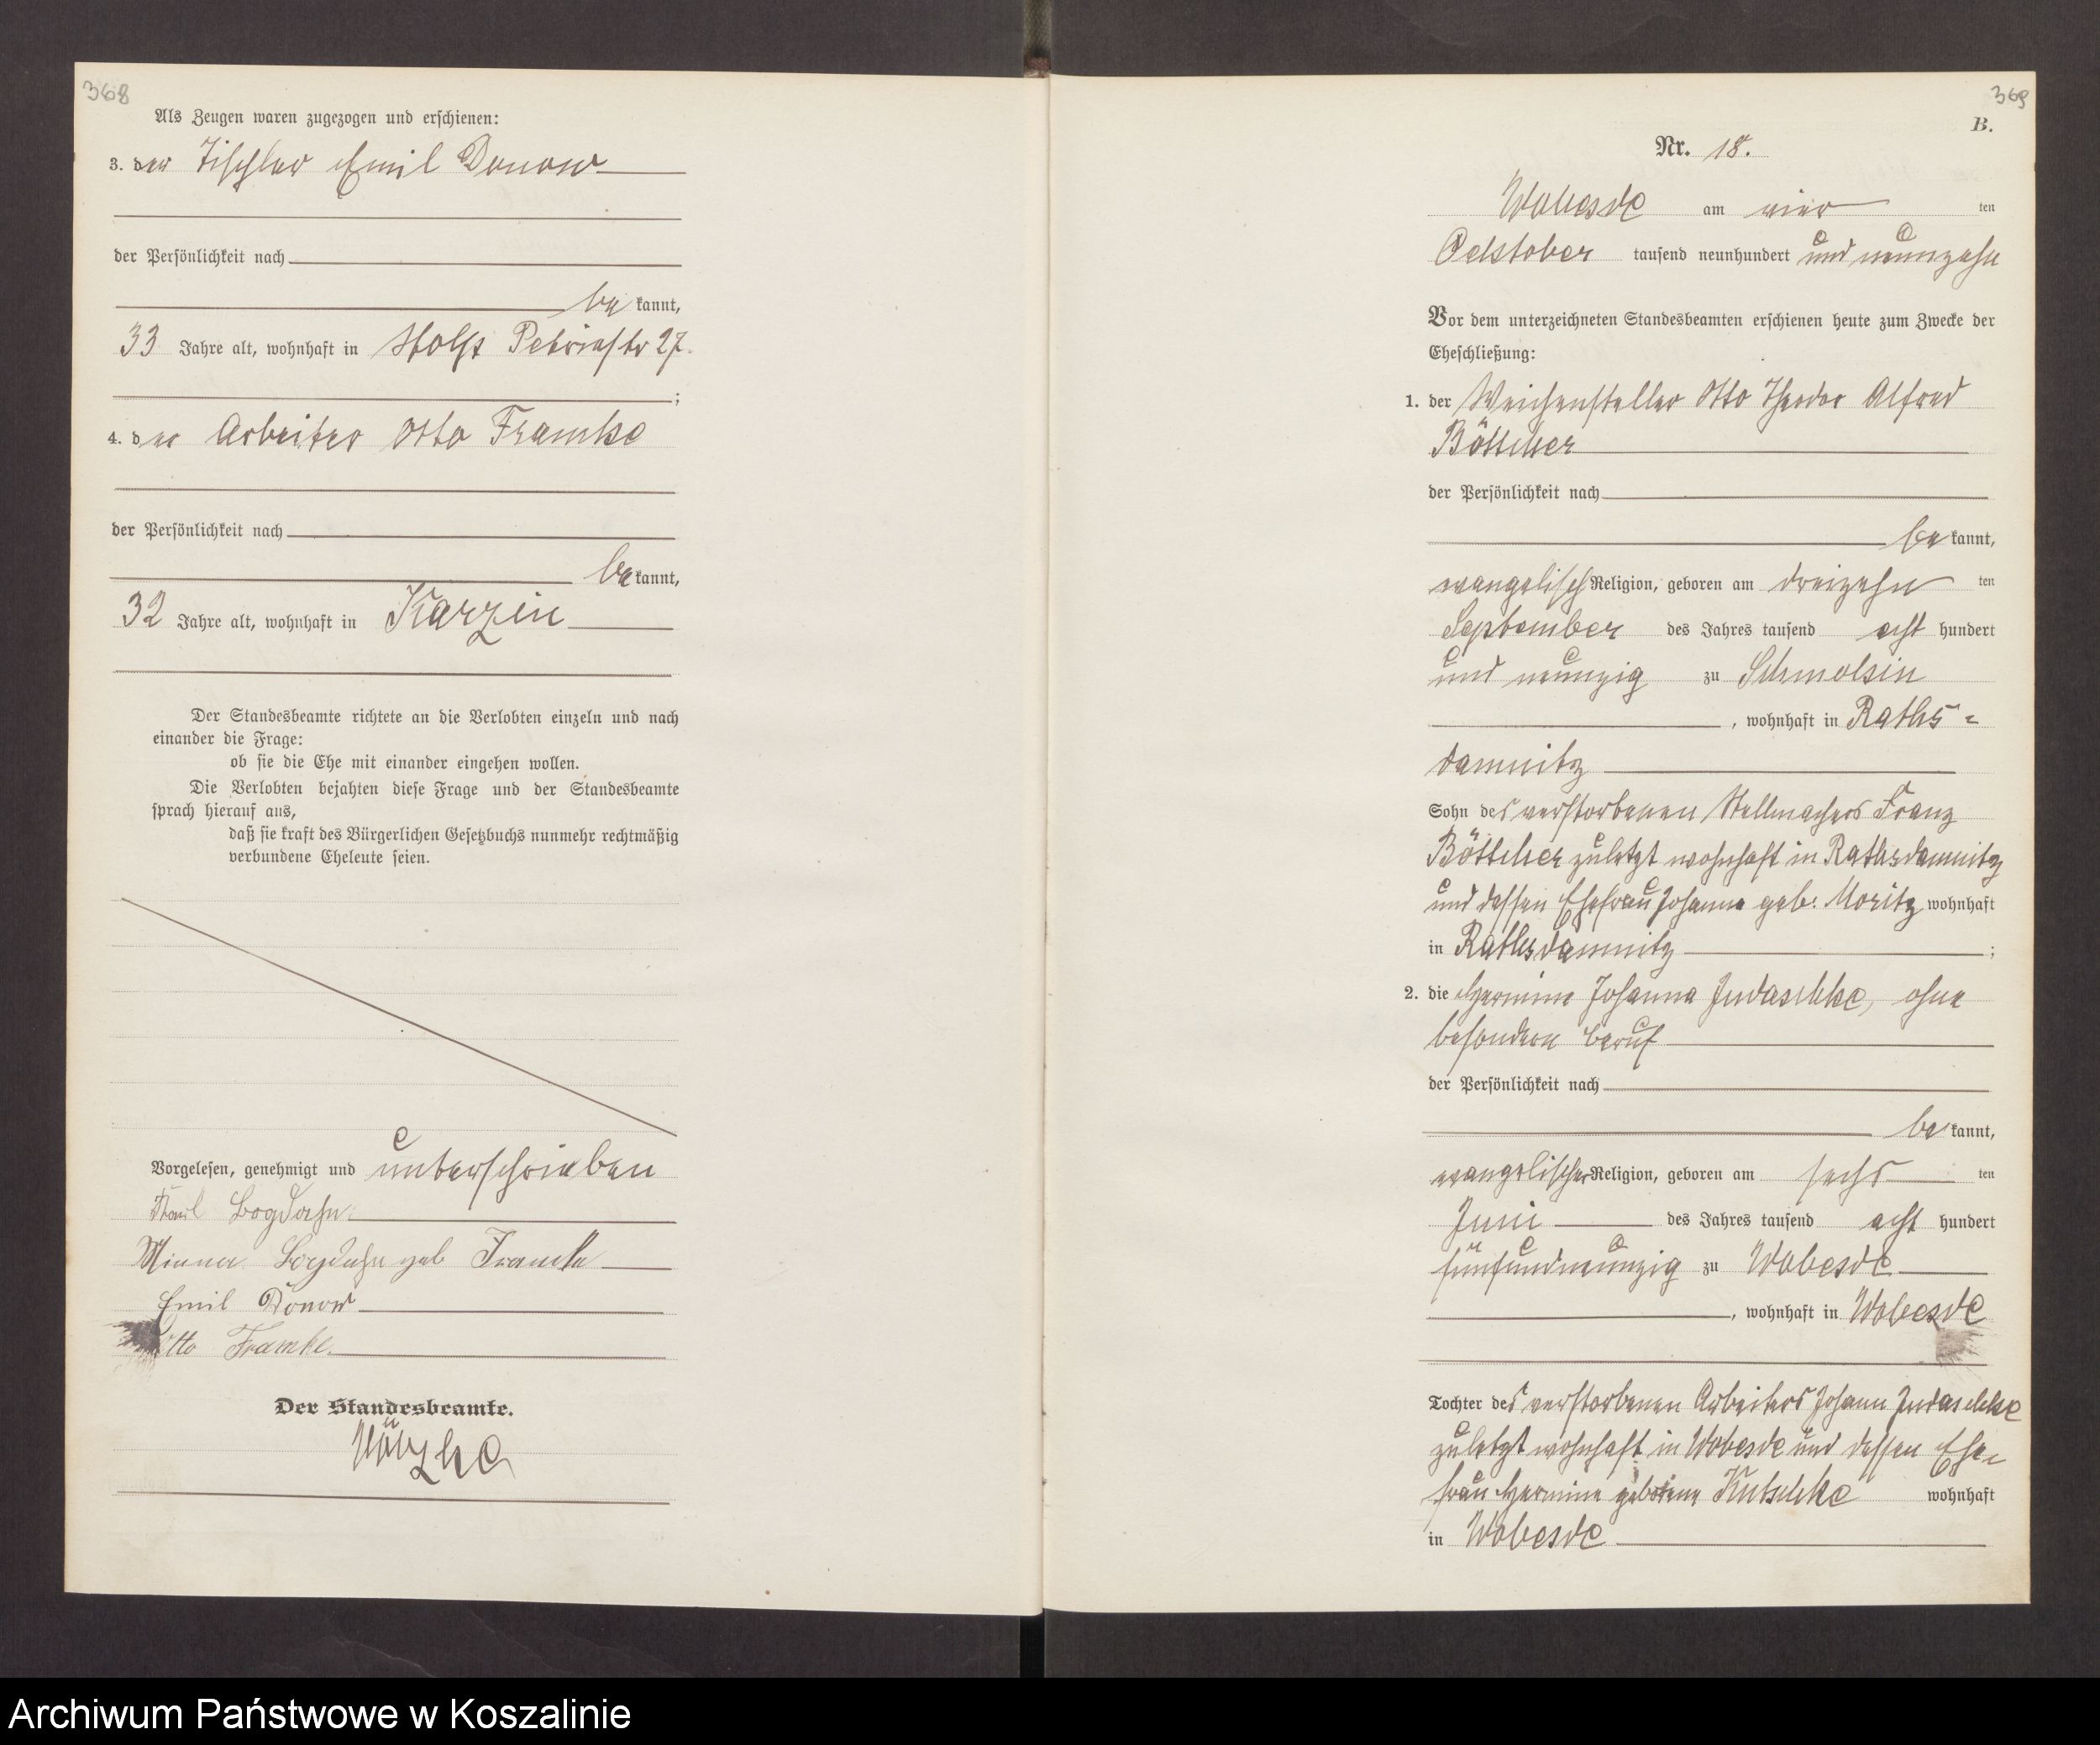 368
Als Zeugen waren zugezogen und erschienen:
3. der Tischler Emil Donow
der Persönlichkeit nach
be kannt,
33 Jahre alt, wohnhaft in Stolp Petristr 27.
;
4. der Arbeiter Otto Framke
der Persönlichkeit nach
be kannt,
32 Jahre alt, wohnhaft in Karzin
Der Standesbeamte richtete an die Verlobten einzeln und nach
einander die Frage:
ob sie die Ehe mit einander eingehen wollen.
Die Verlobten bejahten diese Frage und der Standesbeamte
sprach hierauf aus,
daß sie kraft des Bürgerlichen Gesetzbuchs nunmehr rechtmäßig
verbundene Eheleute seien.
Vorgelesen, genehmigt und unterschrieben
Bogdahn
Minna Bogdahn geb Framke
Emil Donow
Otto Framke
Der Standesbeamte.
369
B.
Nr. 18.
Wobesde am vier ten
Oektober tausend neunhundert und neunzehn
Vor dem unterzeichneten Standesbeamten erschienen heute zum Zwecke der
Eheschließung:
1. der Weichensteller Otto Theodor Alfred
Böttcher
der Persönlichkeit nach
be kannt,
evangelisch Religion, geboren am dreizehn ten
September des Jahres tausend acht hundert
und neunzig zu Schmolsin
, wohnhaft in Raths=
damnitz
Sohn des verstorbenen Stellmachers Franz
Böttcher zuletzt wohnhaft in Rathsdamnitz
und dessen Ehefrau Johanna geb: Moritz wohnhaft
in Rathsdamnitz ;
2. die Hermine Johanna Judaschke, ohne
besondern Beruf
der Persönlichkeit nach
be kannt,
evangelischer Religion, geboren am sechs ten
Juni des Jahres tausend acht hundert
fünfundneunzig zu Wobesde
, wohnhaft in Wobesde
Tochter des verstorbenen Arbeiters Johann Judaschke
zuletzt wohnhaft in Wobesde und dessen Ehe=
frau Hermine geborene Kutschke wohnhaft
in Wobesde
Archiwum Państwowe w Koszalinie